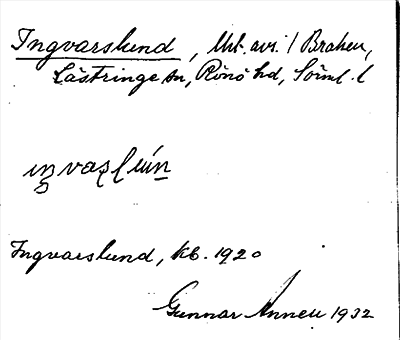 Ingvarslund, Utt. avs. / Braheu,
Lästringe sn, Rönö hd, Söml. l
Ingvarslund, kb. 1920
Gunnar Anneu 1932